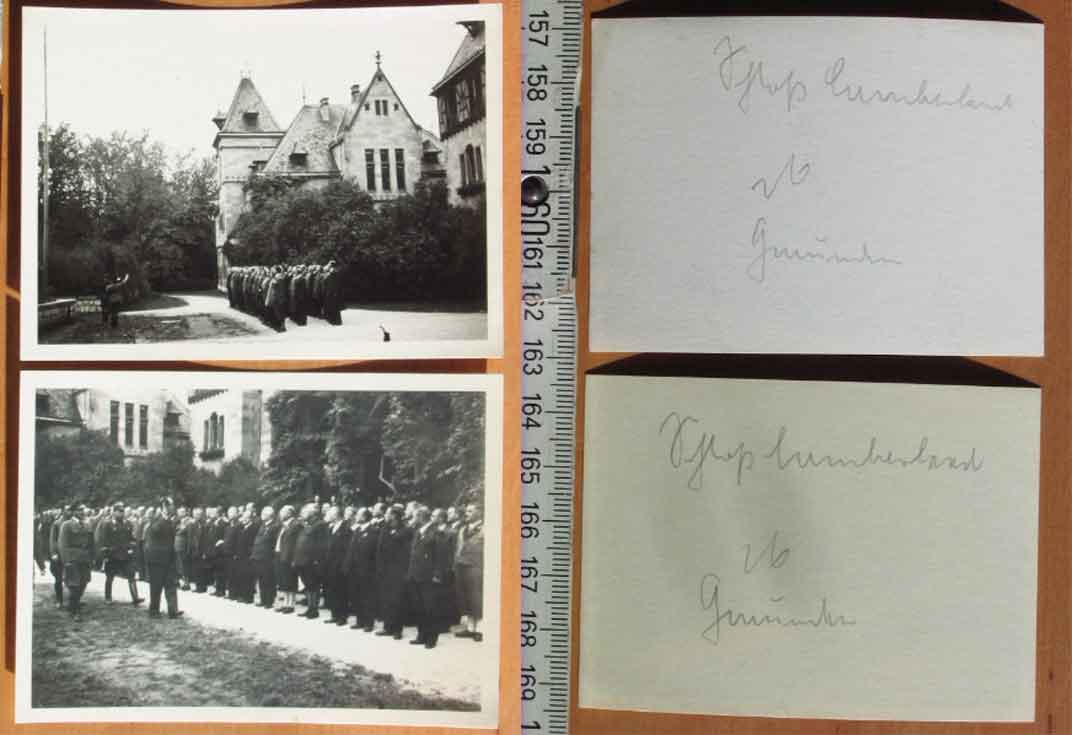 157
158
159
160
161
162
163
164
165
166
167
168
169
1
Schloß Cumberland
Gmunden
Schloß Cumberland
Gmunden